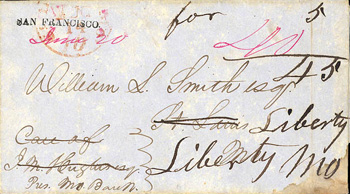 SAN FRANCISCO.
for 5
June 20 40
45
William S. Smith esq.
St. Louis Liberty
Care of
Liberty Mo
J. M. Hughes esq
Pres. Mo Bank.